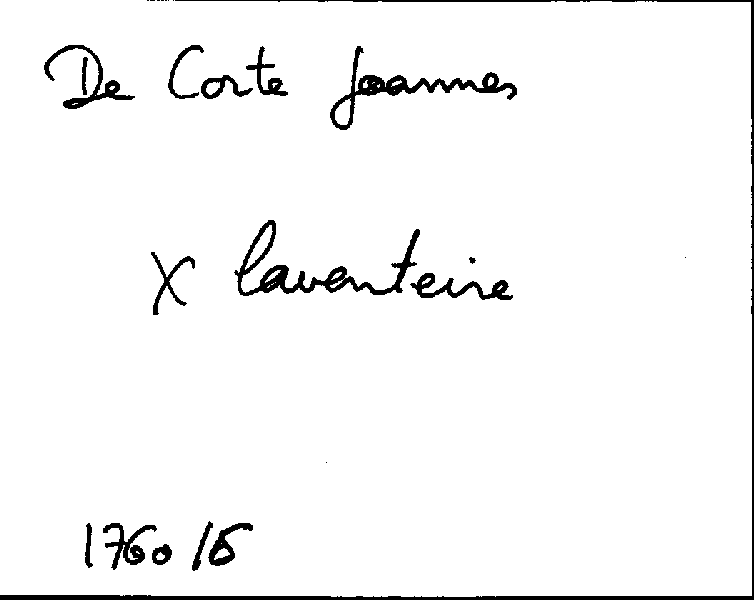 De Corte Joannes
X laventeire
1760/5